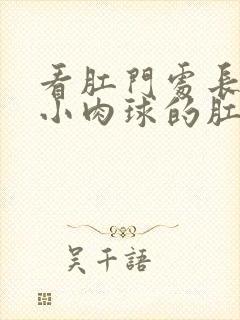 看肛門處長
小肉球的肛
吴千語